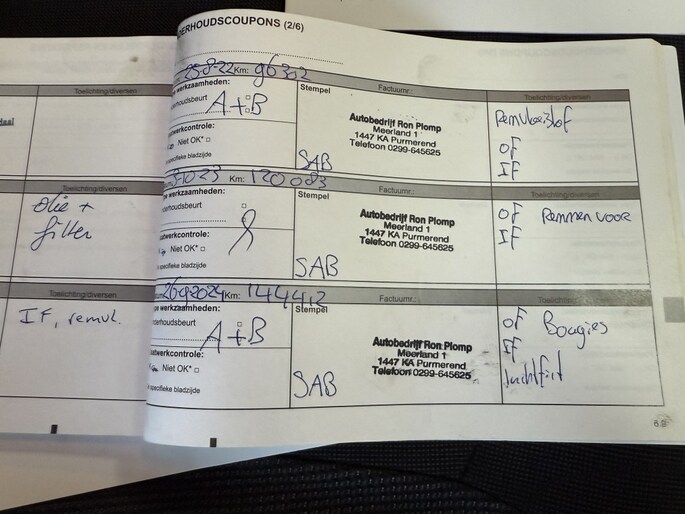 DERHOUDSCOUPONS (2/6)
25-8-22 Km: 96302
werkzaamheden:
Stempel
Factuurnr.:
Toelichting/diversen
erhoudsbeurt
A+B
Autobedrijf Ron Plomp
Meerland 1
1447 KA Purmerend
Telefoon 0299-645625
Remvloeistof
OF
IF
twerkcontrole:
Niet OK*
specifieke bladzijde
SAB
Toelichting/diversen
olie +
filter
1023 Km: 120083
werkzaamheden:
Stempel
Factuurnr.:
Toelichting/diversen
erhoudsbeurt
Autobedrijf Ron Plomp
Meerland 1
1447 KA Purmerend
Telefoon 0299-645625
OF Remmen voor
IF
twerkcontrole:
Niet OK*
specifieke bladzijde
SAB
Toelichting/diversen
IF, remvl.
26-9-2024 Km: 144412
werkzaamheden:
Stempel
Factuurnr.:
Toelichting/diversen
derhoudsbeurt
A+B
Autobedrijf Ron Plomp
Meerland 1
1447 KA Purmerend
Telefoon 0299-645625
OF Bougies
IF
luchtfilt
aatwerkcontrole:
Niet OK*
specifieke bladzijde
SAB
Toelichting/diversen